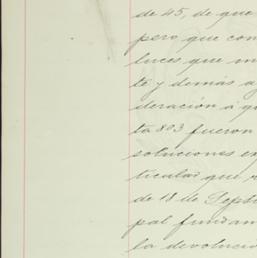 de 45, de que
pero que con
luces que
te y demás a
deración á
ta 803 fueron
soluciones
ticular que
de 18 de Septi
pal fundam
la devolució